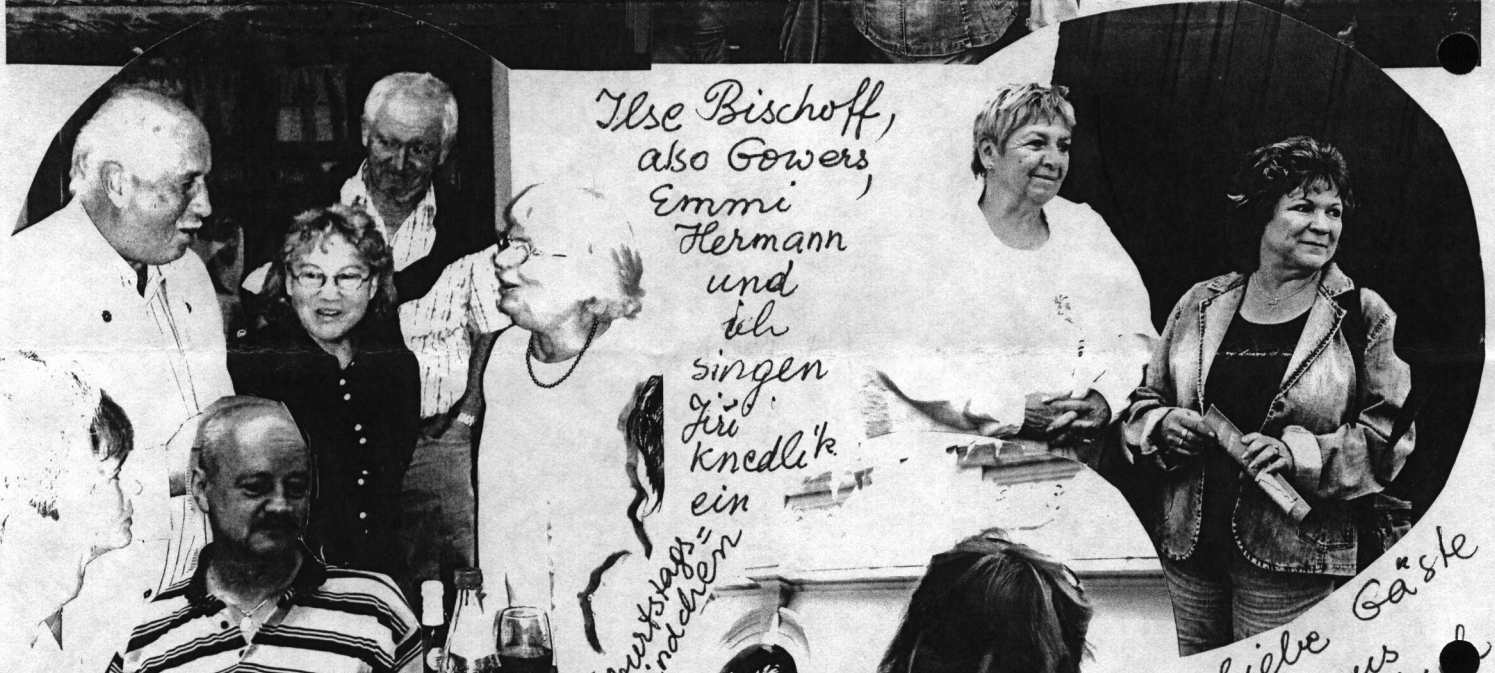 Ilse Bischoff,
also Gowers,
Emmi
Hermann
und
ich
singen
Jiři
Knedlik
ein
liebe Gäste